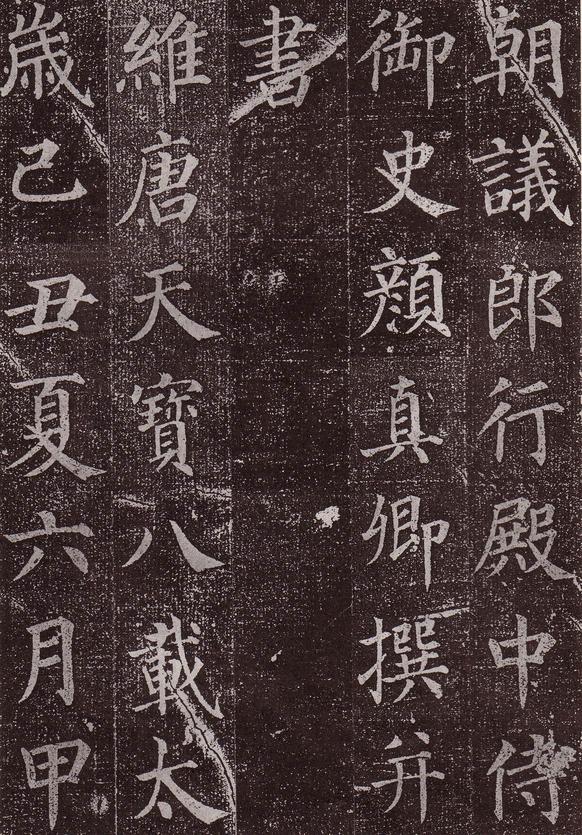 朝議郎行殿中侍
御史顔真卿撰并
書
維唐天寶八載太
歲己丑夏六月甲